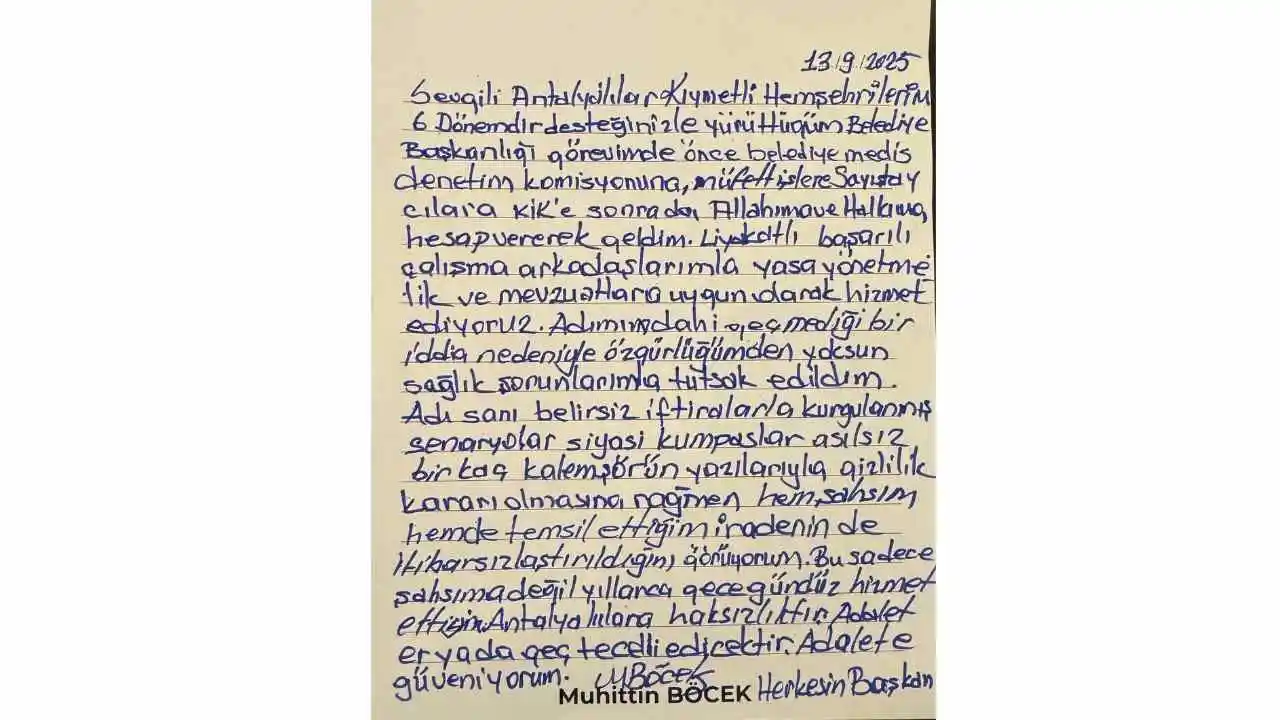 13.9.2025
Sevgili Antalyalılar Kıymetli Hemşehrilerim
6 Dönemdir desteğinizle yürüttüğüm Belediye
Başkanlığı görevimde önce belediye meclis
denetim komisyonuna, müfettişlere Sayıştay
cılara KİK'e sonrada, Allahıma ve Halkıma,
hesap vererek geldim. Liyakatlı başarılı
çalışma arkadaşlarımla yasa yönetme
lik ve mevzuatlara uygun olarak hizmet
ediyoruz. Adımın dahi geçmediği bir
iddia nedeniyle özgürlüğümden yoksun
sağlık sorunlarımla tutsak edildim.
Adı sanı belirsiz iftiralarla kurgulanmış
senaryolar siyasi kumpaslar asılsız
bir kaç kalemşör'ün yazılarıyla gizlilik
kararı olmasına, rağmen hem şahsım
hemde temsil ettiğim iradenin de
itibarsızlaştırıldığını görüyorum. Bu sadece
şahsıma değil yıllarca gece gündüz hizmet
ettiğim Antalyalılara haksızlıktır. Adalet
er ya da geç tecelli edicektir. Adalete
güveniyorum. MBÖCEK
Muhittin BÖCEK Herkesin Başkanı